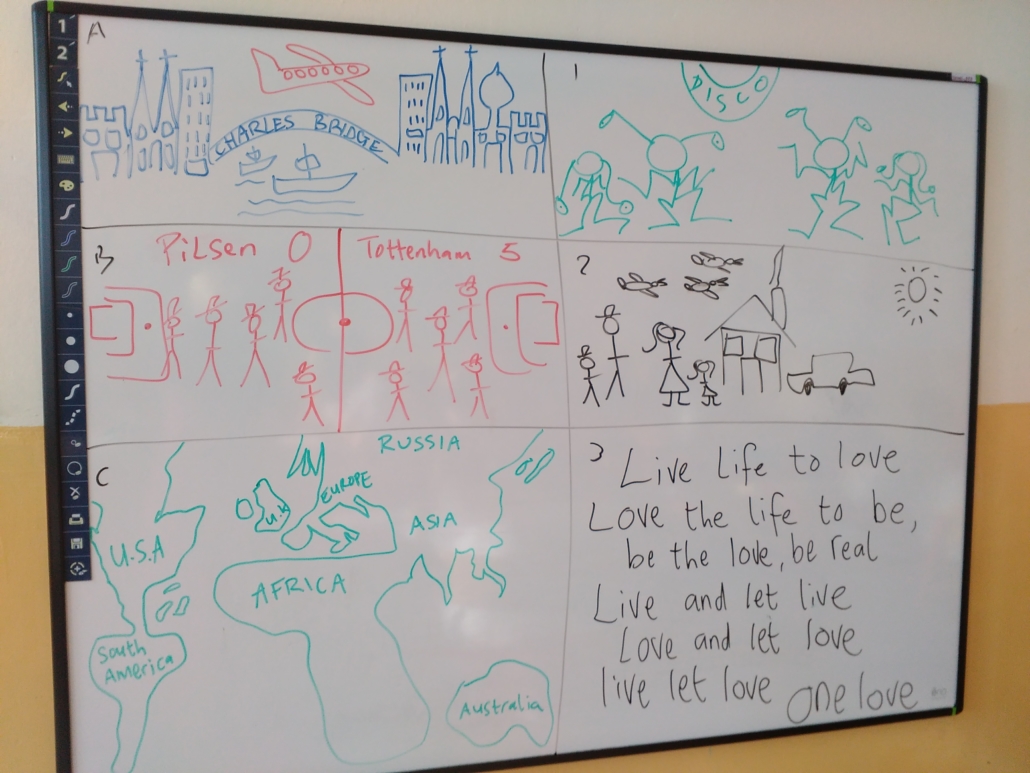 1
2
A
CHARLES BRIDGE
1
DISCO
B
Pilsen 0 Tottenham 5
2
C
RUSSIA
EUROPE
U.K
ASIA
U.S.A
AFRICA
South
America
Australia
3
Live life to love
Love the life to be,
be the love, be real
Live and let live
Love and let love
live let love one love